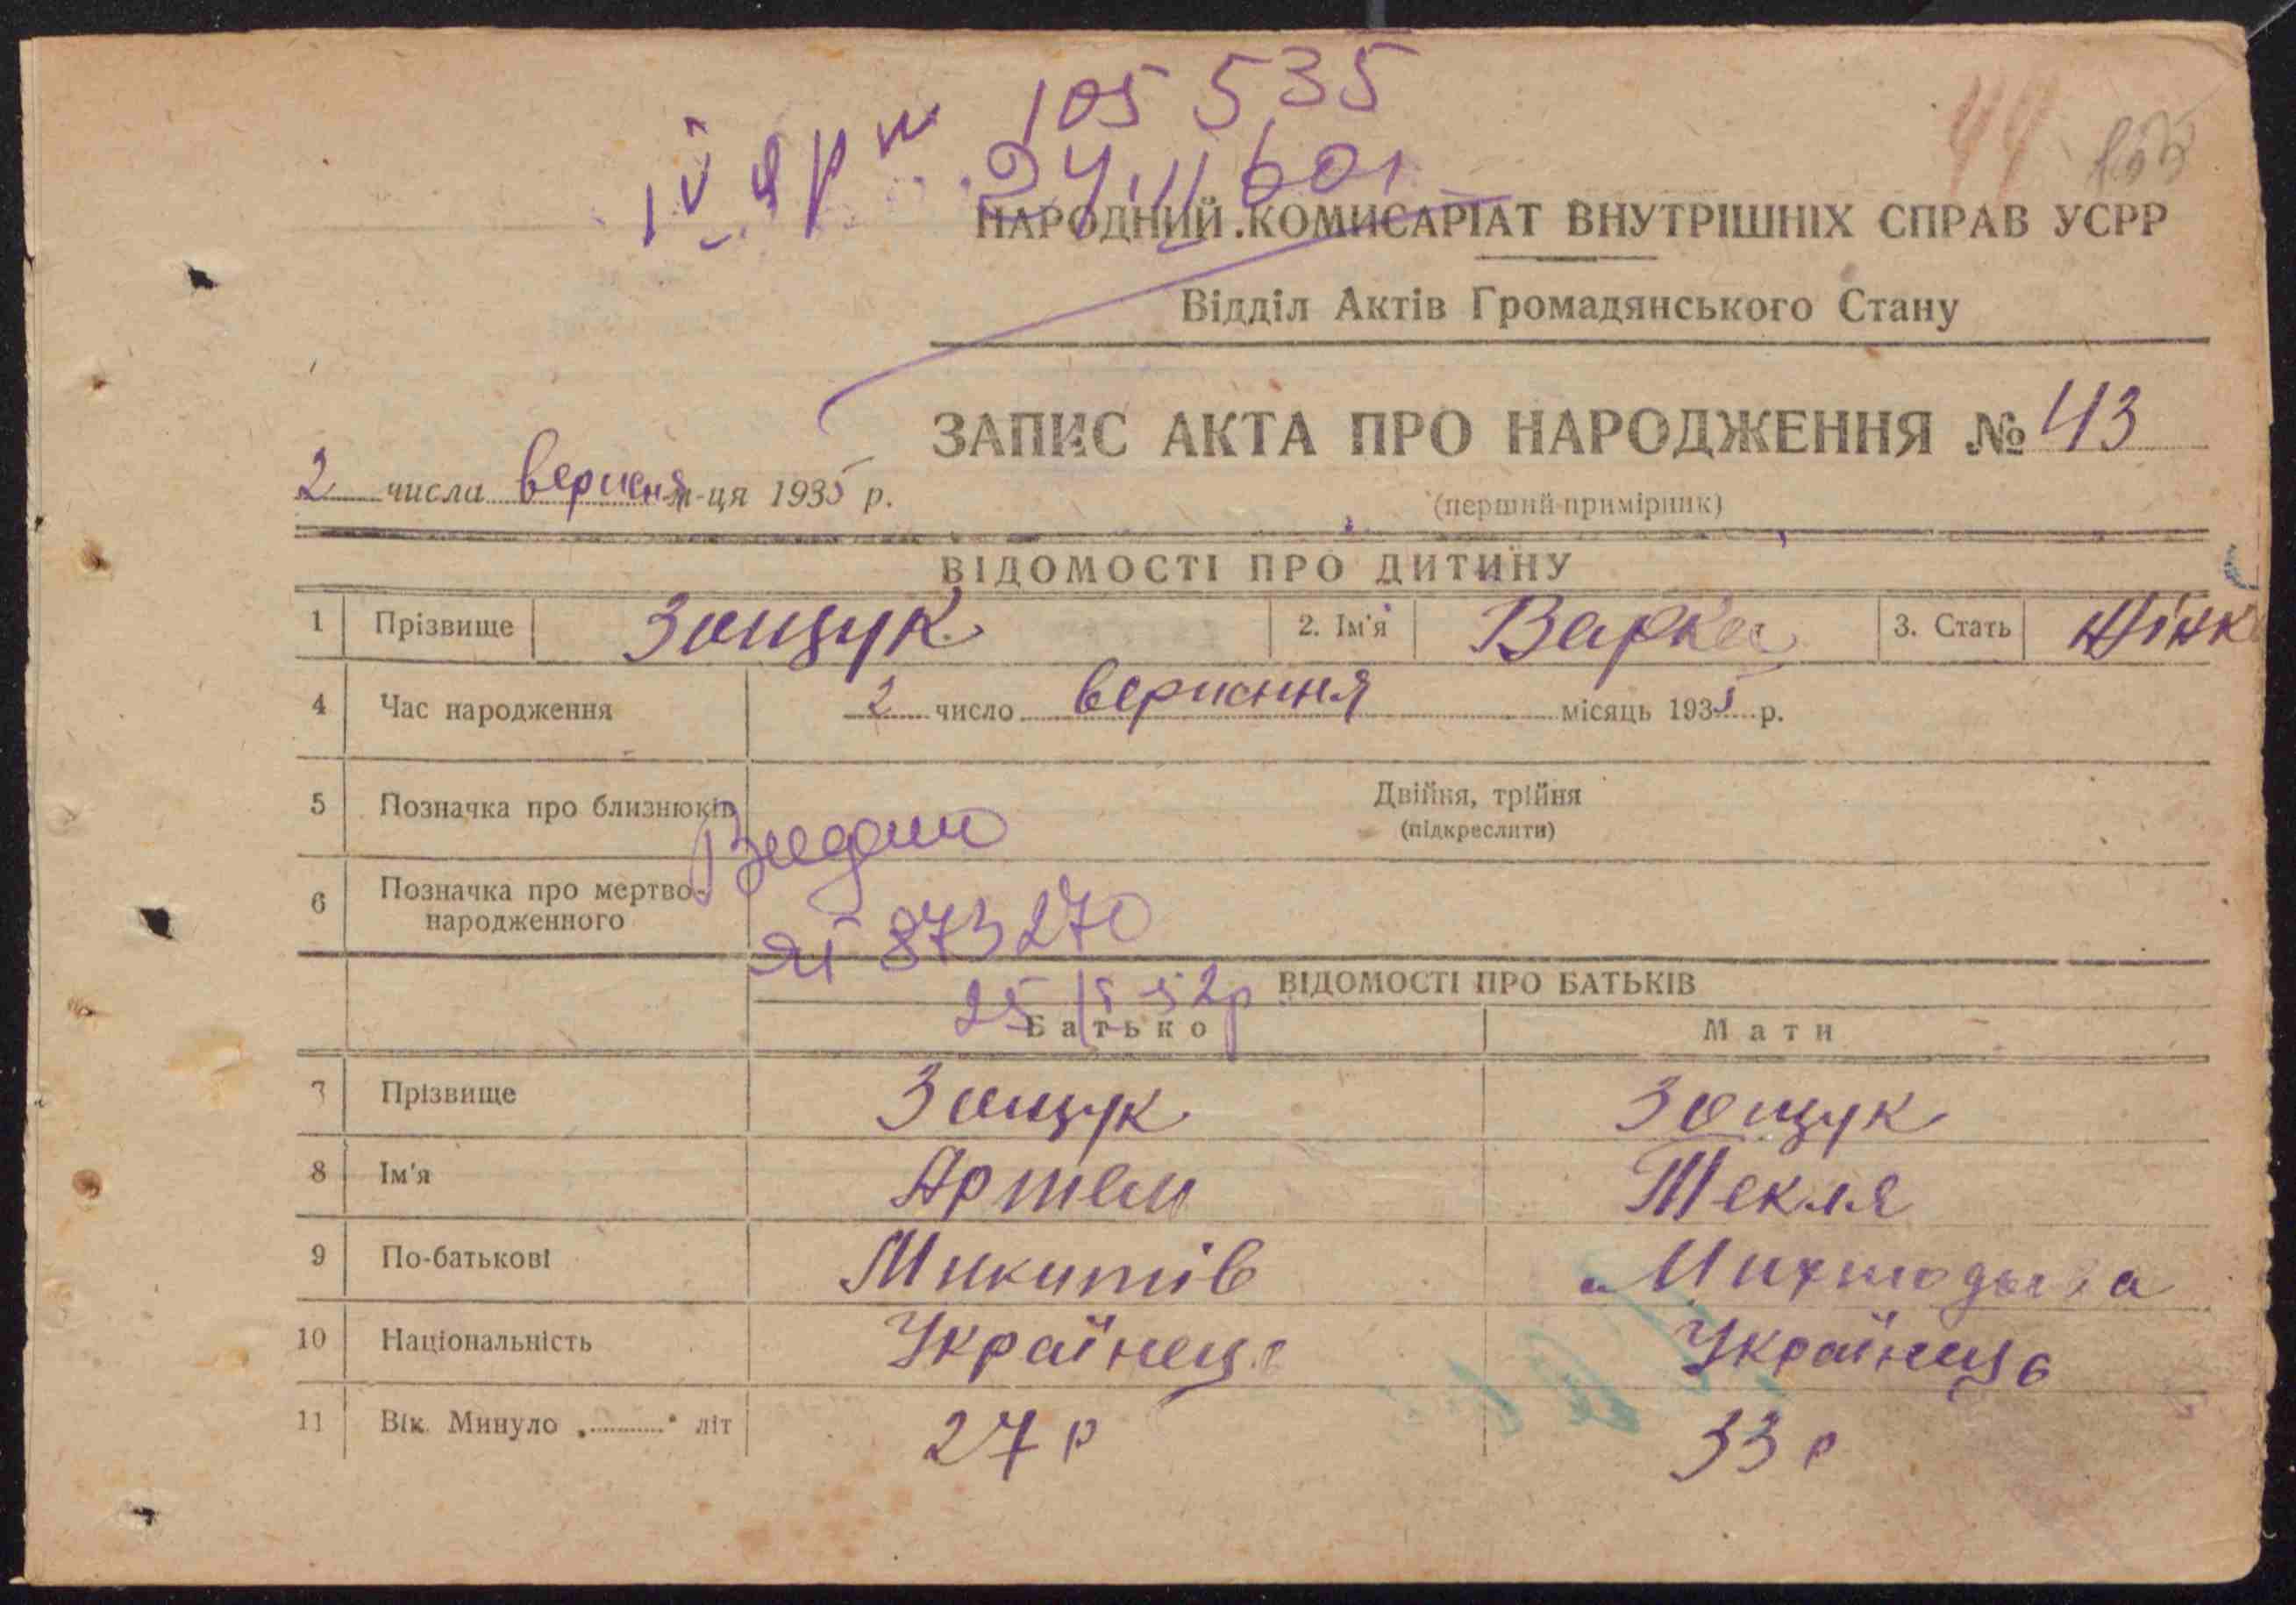 105 535
IV
НАРОДНИЙ КОМИСАРІАТ ВНУТРІШНІХ СПРАВ УСРР
Відділ Актів Громадянського Стану
ЗАПИС АКТА ПРО НАРОДЖЕННЯ № 43
2 числа вересня м-ця 1935 р.
(перший примірник)
ВІДОМОСТІ ПРО ДИТИНУ
1 Прізвище Зощук 2. Ім'я Варка 3. Стать Жінк
4 Час народження 2 число вересння місяць 1935 р.
5 Позначка про близнюків Двійня, трійня
(підкреслити)
Видано
6 Позначка про мертво-
народженного
873270
ВІДОМОСТІ ПРО БАТЬКІВ
25 52р
Батько Мати
7 Прізвище Зощук Зощук
8 Ім'я Артем Текля
9 По-батькові Микитів
10 Національність Українець Українець
11 Вік. Минуло „..........“ літ 27 р 33 р